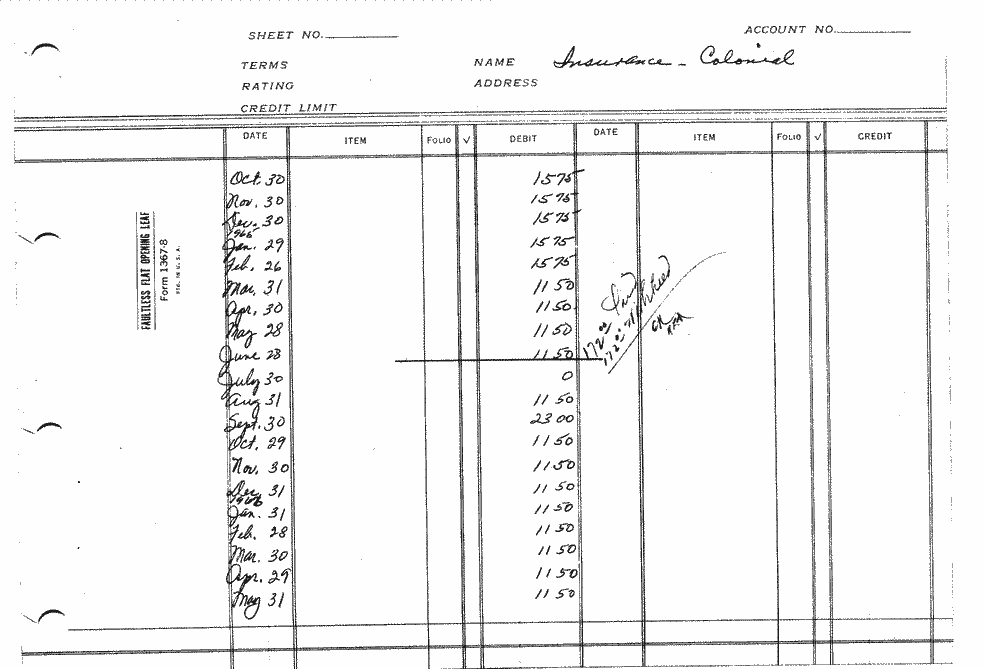 SHEET NO.
ACCOUNT NO.
TERMS
NAME Insurance - Colonial
RATING
ADDRESS
CREDIT LIMIT
DATE ITEM FOLIO √ DEBIT DATE ITEM FOLIO √ CREDIT
Oct. 30 15 75
Nov. 30 15 75
Dec. 30 15 75
1965
Jan. 29 15 75
Feb. 26 15 75
Mar. 31 11 50
Apr. 30 11 50
May 28 11 50
June 28 11 50
July 30 0
Aug 31 11 50
Sept. 30 23 00
Oct. 29 11 50
Nov. 30 11 50
Dec. 31 11 50
1966
Jan. 31 11 50
Feb. 28 11 50
Mar. 30 11 50
Apr. 29 11 50
May 31 11 50
172.00
172.00
FAULTLESS FLAT OPENING LEAF
Form 1367-8
U. S. A.